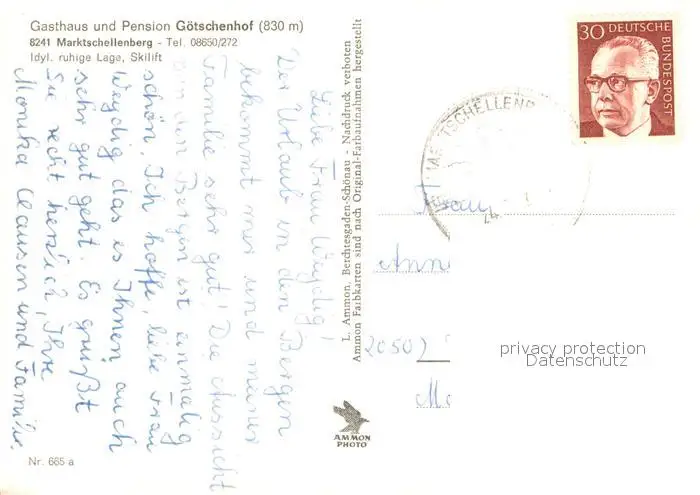 Gasthaus und Pension Götschenhof (830 m)
8241 Marktschellenberg - Tel. 08650/272
Idyl. ruhige Lage, Skilift
Liebe Frau Weydig!
Der Urlaub in den Bergen
bekommt mir und meiner
Familie sehr gut! Die Aussicht
von den Bergen ist einmalig
schön. Ich hoffe, liebe Frau
Weydig das es Ihnen auch
sehr gut geht. Es grüßt
Sie recht herzlich, Ihre
Monika Clausen und Familie.
Nr. 665 a
L. Ammon, Berchtesgaden-Schönau - Nachdruck verboten
Ammon Farbkarten sind nach Original-Farbaufnahmen hergestellt
AMMON
PHOTO
30 DEUTSCHE
BUNDESPOST
MARKTSCHELLENB
Frau
Anne
2050
privacy protection
Datenschutz